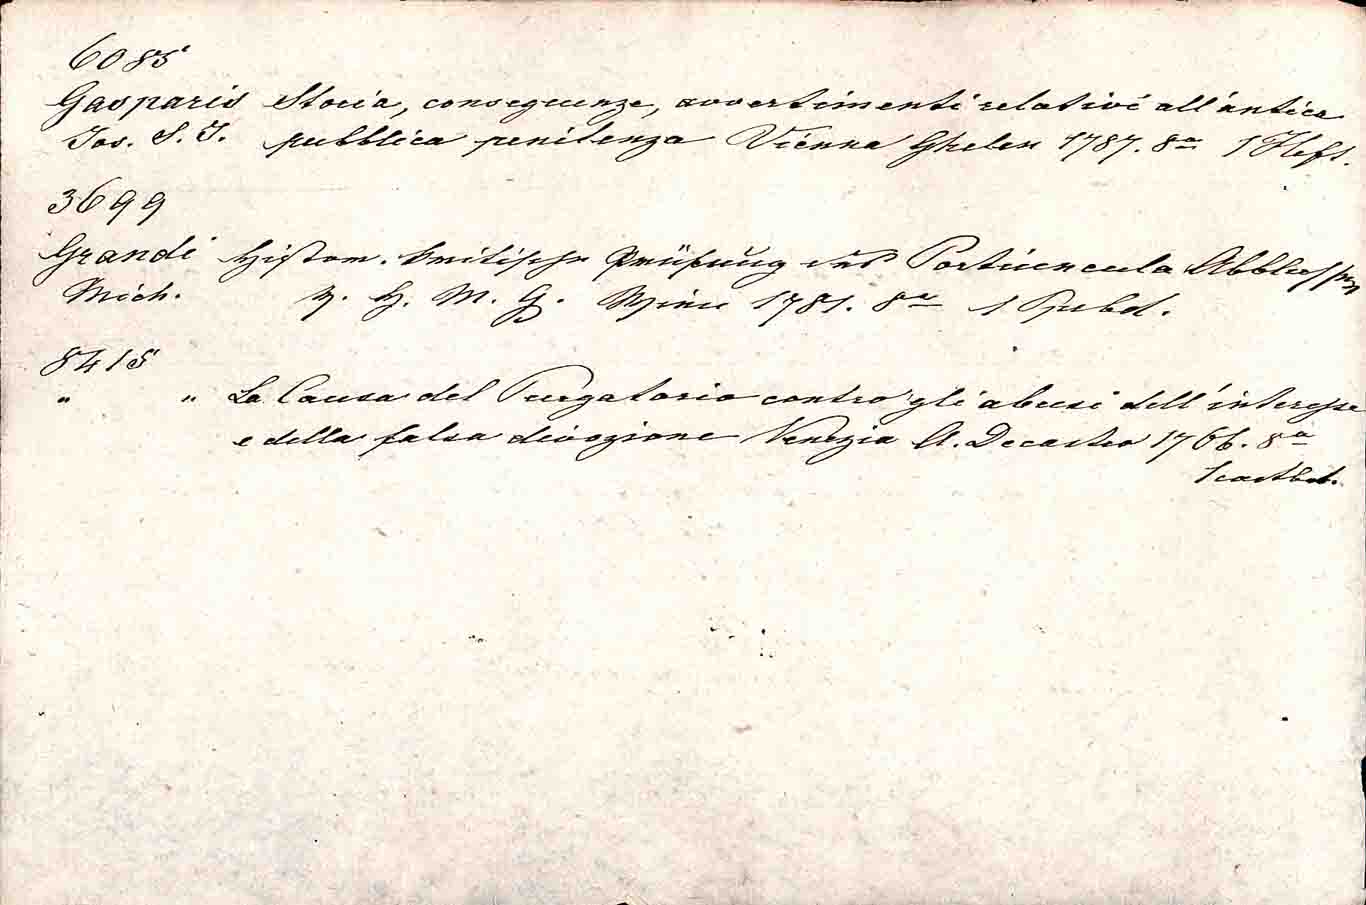 6085
Gasparis Storia, conseguenze, avvertimenti relativi all'antica
Jos. S. J. pubblica penitenza Vienna Ghelen 1787. 8º 1 Heft.
3699
Grandi Histor. kritische Prüfung des Portiuncula Ablasses
Mich. v. H. M. G. Wien 1781. 8º 1 Ppbd.
8415
" " La Causa del Purgatorio contro gli abusi dell'interesse
e della falsa divozione Venezia A. Decastro 1766. 8º
1 cartbd.